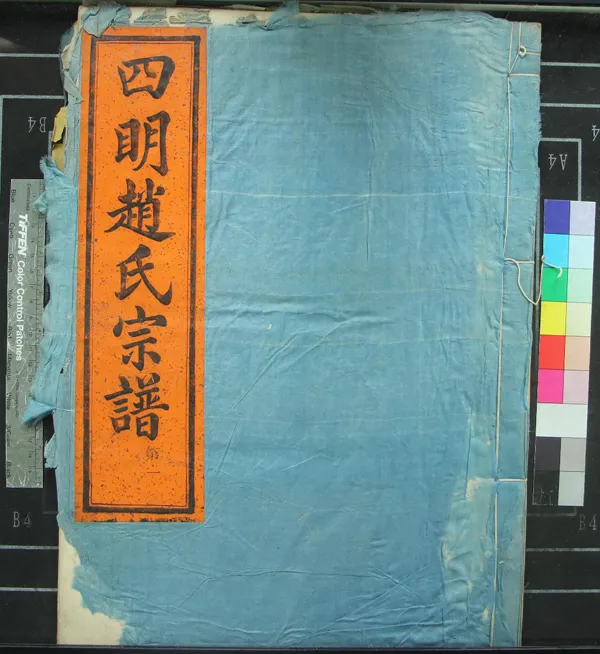 四明趙氏宗譜
第一
TIFFEN Color Control Patches
B4
A4
A4
B4
B4